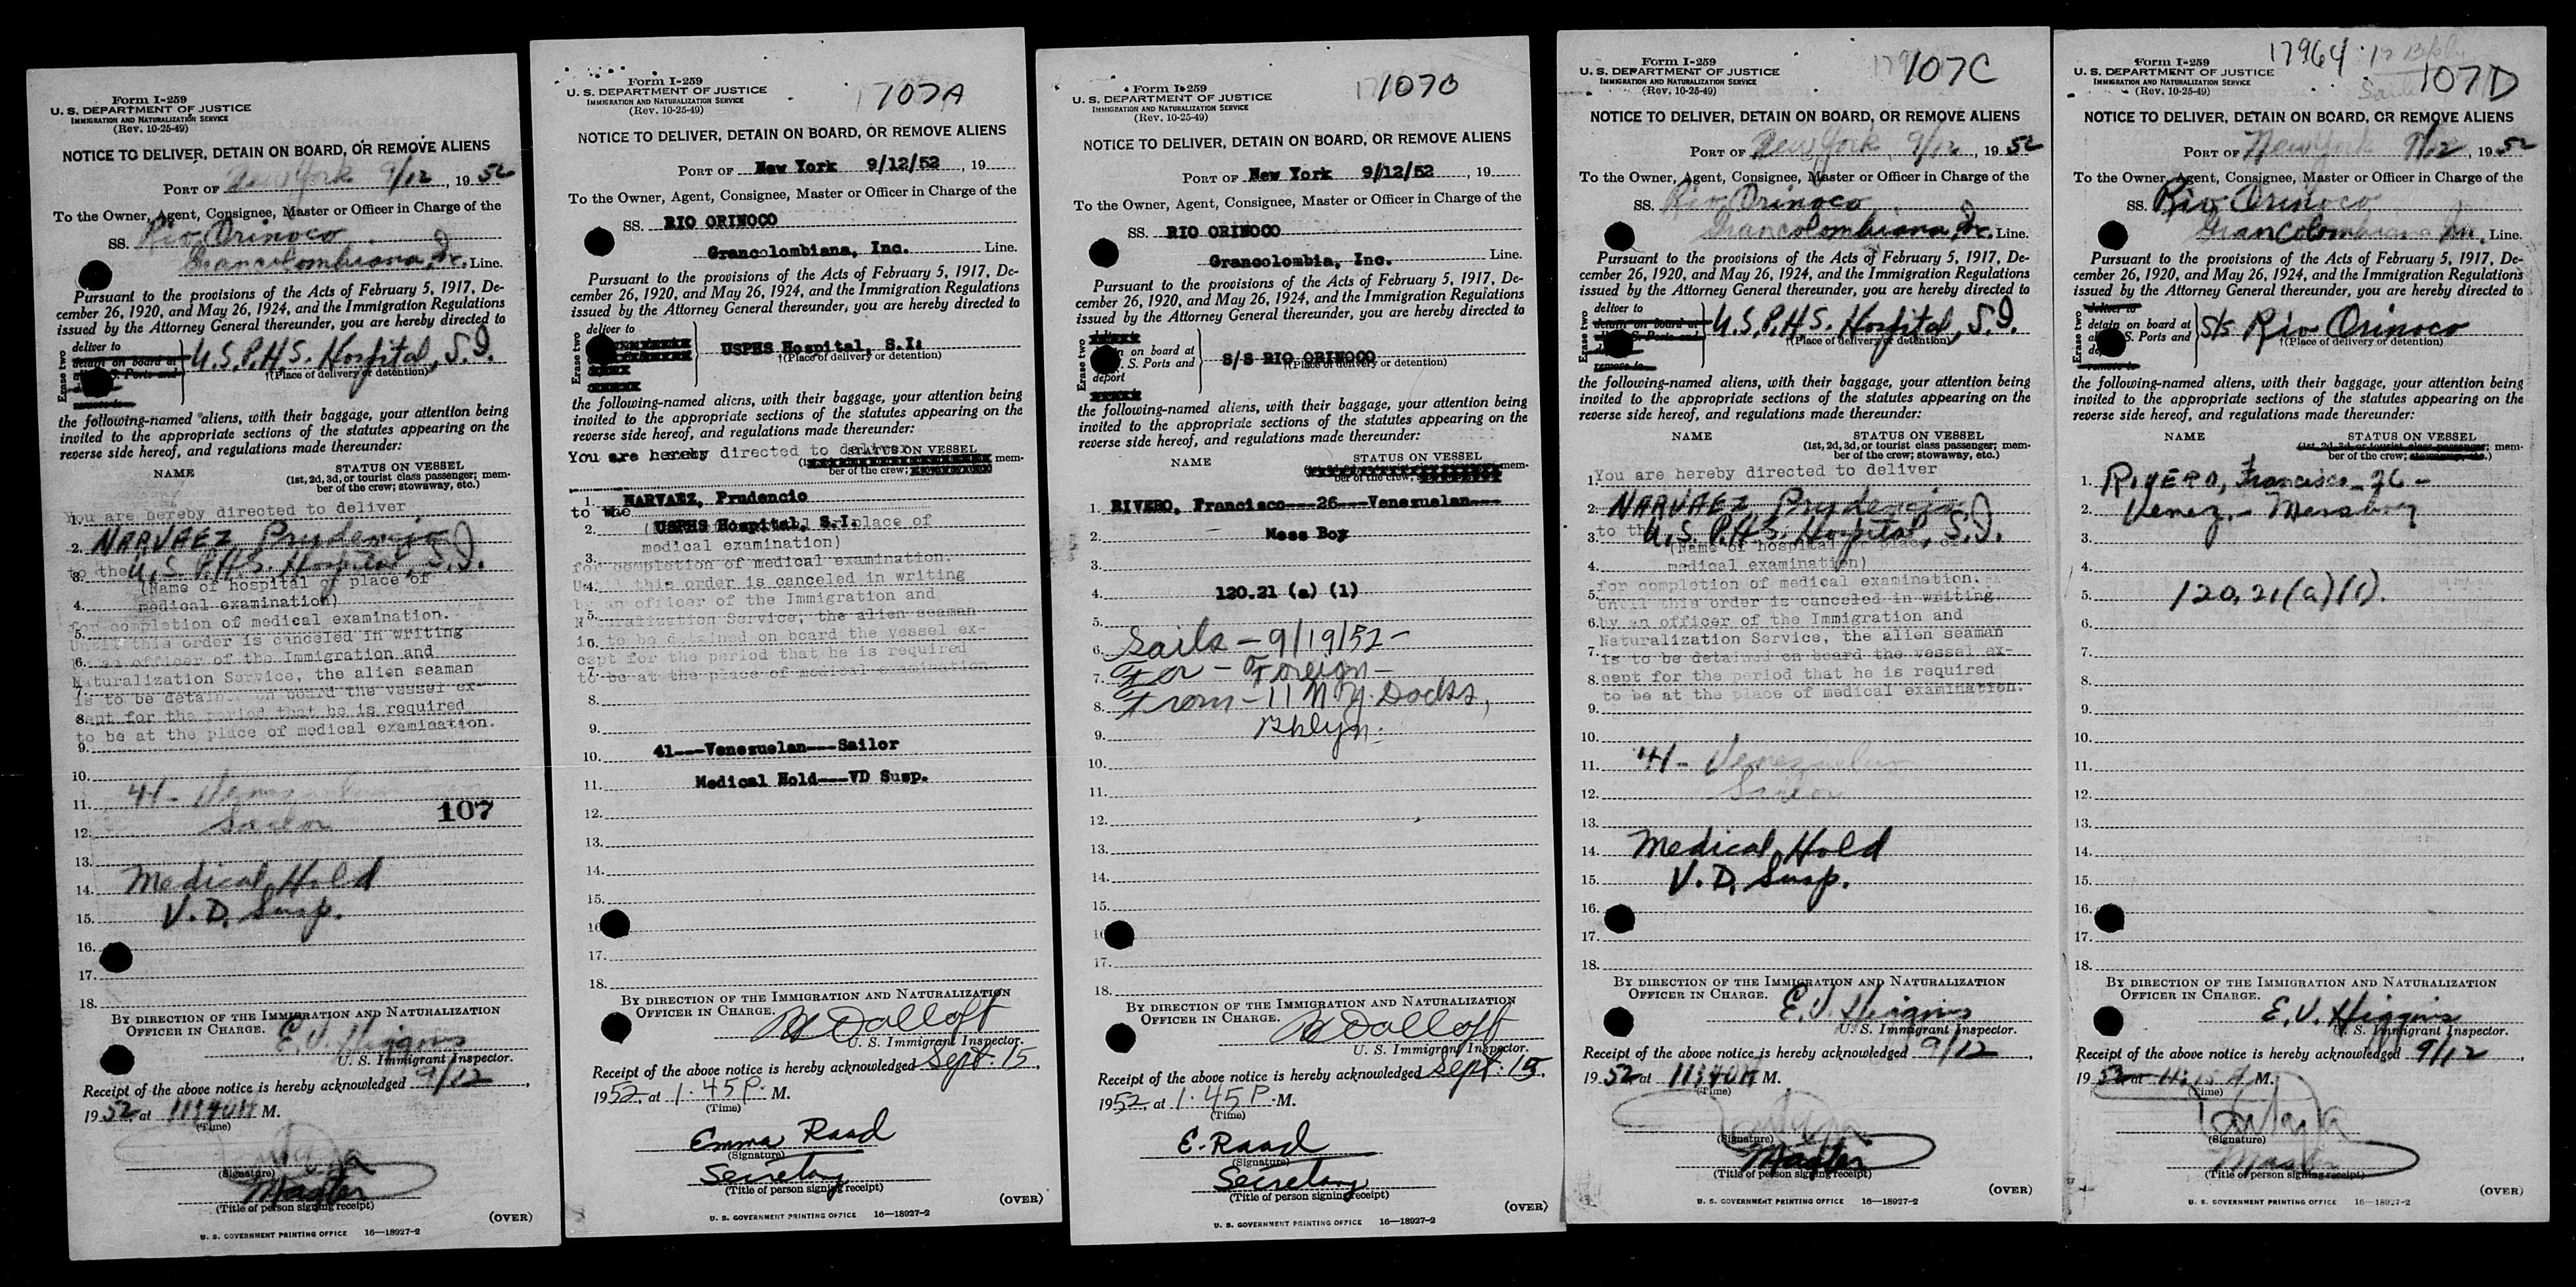 Form I-259
U. S. DEPARTMENT OF JUSTICE
IMMIGRATION AND NATURALIZATION SERVICE
(Rev. 10-25-49)
NOTICE TO DELIVER, DETAIN ON BOARD, OR REMOVE ALIENS
PORT OF New York 9/12, 1952
To the Owner, Agent, Consignee, Master or Officer in Charge of the
SS. Rio Orinoco
Grancolombiana, Inc. Line.
Pursuant to the provisions of the Acts of February 5, 1917, De-
cember 26, 1920, and May 26, 1924, and the Immigration Regulations
issued by the Attorney General thereunder, you are hereby directed to
Erase two
deliver to
detain on board at
S. Ports and
remove to
U.S.P.H.S. Hospital, S.I.
†(Place of delivery or detention)
the following-named aliens, with their baggage, your attention being
invited to the appropriate sections of the statutes appearing on the
reverse side hereof, and regulations made thereunder:
NAME STATUS ON VESSEL
(1st, 2d, 3d, or tourist class passenger; mem-
ber of the crew; stowaway, etc.)
1. You are hereby directed to deliver
2. NARVAEZ Prudencio
3. to the U.S.P.H.S. Hospital, S.I.
(Name of hospital or place of
4. medical examination)
for completion of medical examination.
5. Until this order is canceled in writing
6. by an officer of the Immigration and
Naturalization Service, the alien seaman
7. is to be detained on board the vessel ex-
8. cept for the period that he is required
to be at the place of medical examination.
9.
10.
11. 41- Venezuelan
12. Sailor 107
13.
14. Medical Hold
15. V.D. Susp.
16.
17.
18.
BY DIRECTION OF THE IMMIGRATION AND NATURALIZATION
OFFICER IN CHARGE.
E.V. Higgins
U. S. Immigrant Inspector.
Receipt of the above notice is hereby acknowledged 9/12,
1952, at 11:40A M.
(Time)
(Signature)
Master
(Title of person signing receipt)
(OVER)
U. S. GOVERNMENT PRINTING OFFICE 16—18927-2
Form I-259
U. S. DEPARTMENT OF JUSTICE
IMMIGRATION AND NATURALIZATION SERVICE
(Rev. 10-25-49)
107A
NOTICE TO DELIVER, DETAIN ON BOARD, OR REMOVE ALIENS
PORT OF New York 9/12/52, 19
To the Owner, Agent, Consignee, Master or Officer in Charge of the
SS. RIO ORINOCO
Grancolombiana, Inc. Line.
Pursuant to the provisions of the Acts of February 5, 1917, De-
cember 26, 1920, and May 26, 1924, and the Immigration Regulations
issued by the Attorney General thereunder, you are hereby directed to
Erase two
deliver to
USPHS Hospital, S.I.
†(Place of delivery or detention)
the following-named aliens, with their baggage, your attention being
invited to the appropriate sections of the statutes appearing on the
reverse side hereof, and regulations made thereunder:
You are hereby directed to deliver
STATUS ON VESSEL
mem-
ber of the crew;
1. NARVAEZ, Prudencio
to the
2. USPHS Hospital, S.I. place of
medical examination)
3. for completion of medical examination.
4. Until this order is canceled in writing
by an officer of the Immigration and
5. Naturalization Service, the alien seaman
6. is to be detained on board the vessel ex-
cept for the period that he is required
7. to be at the place of medical examination
8.
9.
10. 41---Venezuelan---Sailor
11. Medical Hold---VD Susp.
12.
13.
14.
15.
16.
17.
18.
BY DIRECTION OF THE IMMIGRATION AND NATURALIZATION
OFFICER IN CHARGE.
U. S. Immigrant Inspector.
Receipt of the above notice is hereby acknowledged Sept. 15,
1952, at 1.45 P. M.
(Time)
Emma Raad
(Signature)
Secretary
(Title of person signing receipt)
(OVER)
U. S. GOVERNMENT PRINTING OFFICE 16—18927-2
Form I-259
U. S. DEPARTMENT OF JUSTICE
IMMIGRATION AND NATURALIZATION SERVICE
(Rev. 10-25-49)
107B
NOTICE TO DELIVER, DETAIN ON BOARD, OR REMOVE ALIENS
PORT OF New York 9/12/52, 19
To the Owner, Agent, Consignee, Master or Officer in Charge of the
SS. RIO ORINOCO
Grancolombia, Inc. Line.
Pursuant to the provisions of the Acts of February 5, 1917, De-
cember 26, 1920, and May 26, 1924, and the Immigration Regulations
issued by the Attorney General thereunder, you are hereby directed to
Erase two
on board at
S. Ports and
deport
S/S RIO ORINOCO
†(Place of delivery or detention)
the following-named aliens, with their baggage, your attention being
invited to the appropriate sections of the statutes appearing on the
reverse side hereof, and regulations made thereunder:
NAME STATUS ON VESSEL
mem-
ber of the crew;
1. RIVERO, Francisco---26---Venezuelan---
2. Mess Boy
3.
4. 120.21 (a) (1)
5.
6. Sails - 9/19/52-
7. For - Foreign -
8. From - 11 N Y. Docks,
9. Bklyn.
10.
11.
12.
13.
14.
15.
16
17.
18.
BY DIRECTION OF THE IMMIGRATION AND NATURALIZATION
OFFICER IN CHARGE.
U. S. Immigrant Inspector.
Receipt of the above notice is hereby acknowledged Sept. 15,
1952, at 1.45 P. M.
(Time)
E. Raad
(Signature)
Secretary
(Title of person signing receipt)
(OVER)
U. S. GOVERNMENT PRINTING OFFICE 16—18927-2
Form I-259
U. S. DEPARTMENT OF JUSTICE
IMMIGRATION AND NATURALIZATION SERVICE
(Rev. 10-25-49)
107C
NOTICE TO DELIVER, DETAIN ON BOARD, OR REMOVE ALIENS
PORT OF New York 9/12, 1952
To the Owner, Agent, Consignee, Master or Officer in Charge of the
SS. Rio Orinoco
Grancolombiana, Inc. Line.
Pursuant to the provisions of the Acts of February 5, 1917, De-
cember 26, 1920, and May 26, 1924, and the Immigration Regulations
issued by the Attorney General thereunder, you are hereby directed to
Erase two
deliver to
detain on board at
S. Ports and
remove to
U.S.P.H.S. Hospital, S.I.
†(Place of delivery or detention)
the following-named aliens, with their baggage, your attention being
invited to the appropriate sections of the statutes appearing on the
reverse side hereof, and regulations made thereunder:
NAME STATUS ON VESSEL
(1st, 2d, 3d, or tourist class passenger; mem-
ber of the crew; stowaway, etc.)
1. You are hereby directed to deliver
2. NARVAEZ Prudencio
3. to the U.S.P.H.S. Hospital, S.I.
(Name of hospital or place of
4. medical examination)
for completion of medical examination.
5. Until this order is canceled in writing
6. by an officer of the Immigration and
Naturalization Service, the alien seaman
7. is to be detained on board the vessel ex-
8. cept for the period that he is required
to be at the place of medical examination.
9.
10.
11. 41- Venezuelan
12. Sailor
13.
14. Medical Hold
15. V.D. Susp.
16.
17.
18.
BY DIRECTION OF THE IMMIGRATION AND NATURALIZATION
OFFICER IN CHARGE.
E.V. Higgins
U. S. Immigrant Inspector.
Receipt of the above notice is hereby acknowledged 9/12,
1952 at 11:40A M.
(Time)
(Signature)
Master
(Title of person signing receipt)
(OVER)
U. S. GOVERNMENT PRINTING OFFICE 16—18927-2
17964
Form I-259
U. S. DEPARTMENT OF JUSTICE
IMMIGRATION AND NATURALIZATION SERVICE
(Rev. 10-25-49)
107D
NOTICE TO DELIVER, DETAIN ON BOARD, OR REMOVE ALIENS
PORT OF New York 9/12, 1952
To the Owner, Agent, Consignee, Master or Officer in Charge of the
SS. Rio Orinoco
Grancolombiana Inc. Line.
Pursuant to the provisions of the Acts of February 5, 1917, De-
cember 26, 1920, and May 26, 1924, and the Immigration Regulations
issued by the Attorney General thereunder, you are hereby directed to
Erase two
deliver to
detain on board at
S. Ports and
remove to
S/S Rio Orinoco
†(Place of delivery or detention)
the following-named aliens, with their baggage, your attention being
invited to the appropriate sections of the statutes appearing on the
reverse side hereof, and regulations made thereunder:
NAME STATUS ON VESSEL
(1st, 2d, 3d, or tourist class passenger; mem-
ber of the crew; stowaway, etc.)
1. RIVERO, Francisco - 26 -
2. Venez. - Messboy
3.
4.
5. 120.21(a)(1).
6.
7.
8.
9.
10.
11.
12.
13.
14.
15.
16.
17.
18.
BY DIRECTION OF THE IMMIGRATION AND NATURALIZATION
OFFICER IN CHARGE.
E.V. Higgins
U. S. Immigrant Inspector.
Receipt of the above notice is hereby acknowledged 9/12,
1952 at 11:15 A M.
(Time)
(Signature)
Master
(Title of person signing receipt)
(OVER)
U. S. GOVERNMENT PRINTING OFFICE 16—18927-2